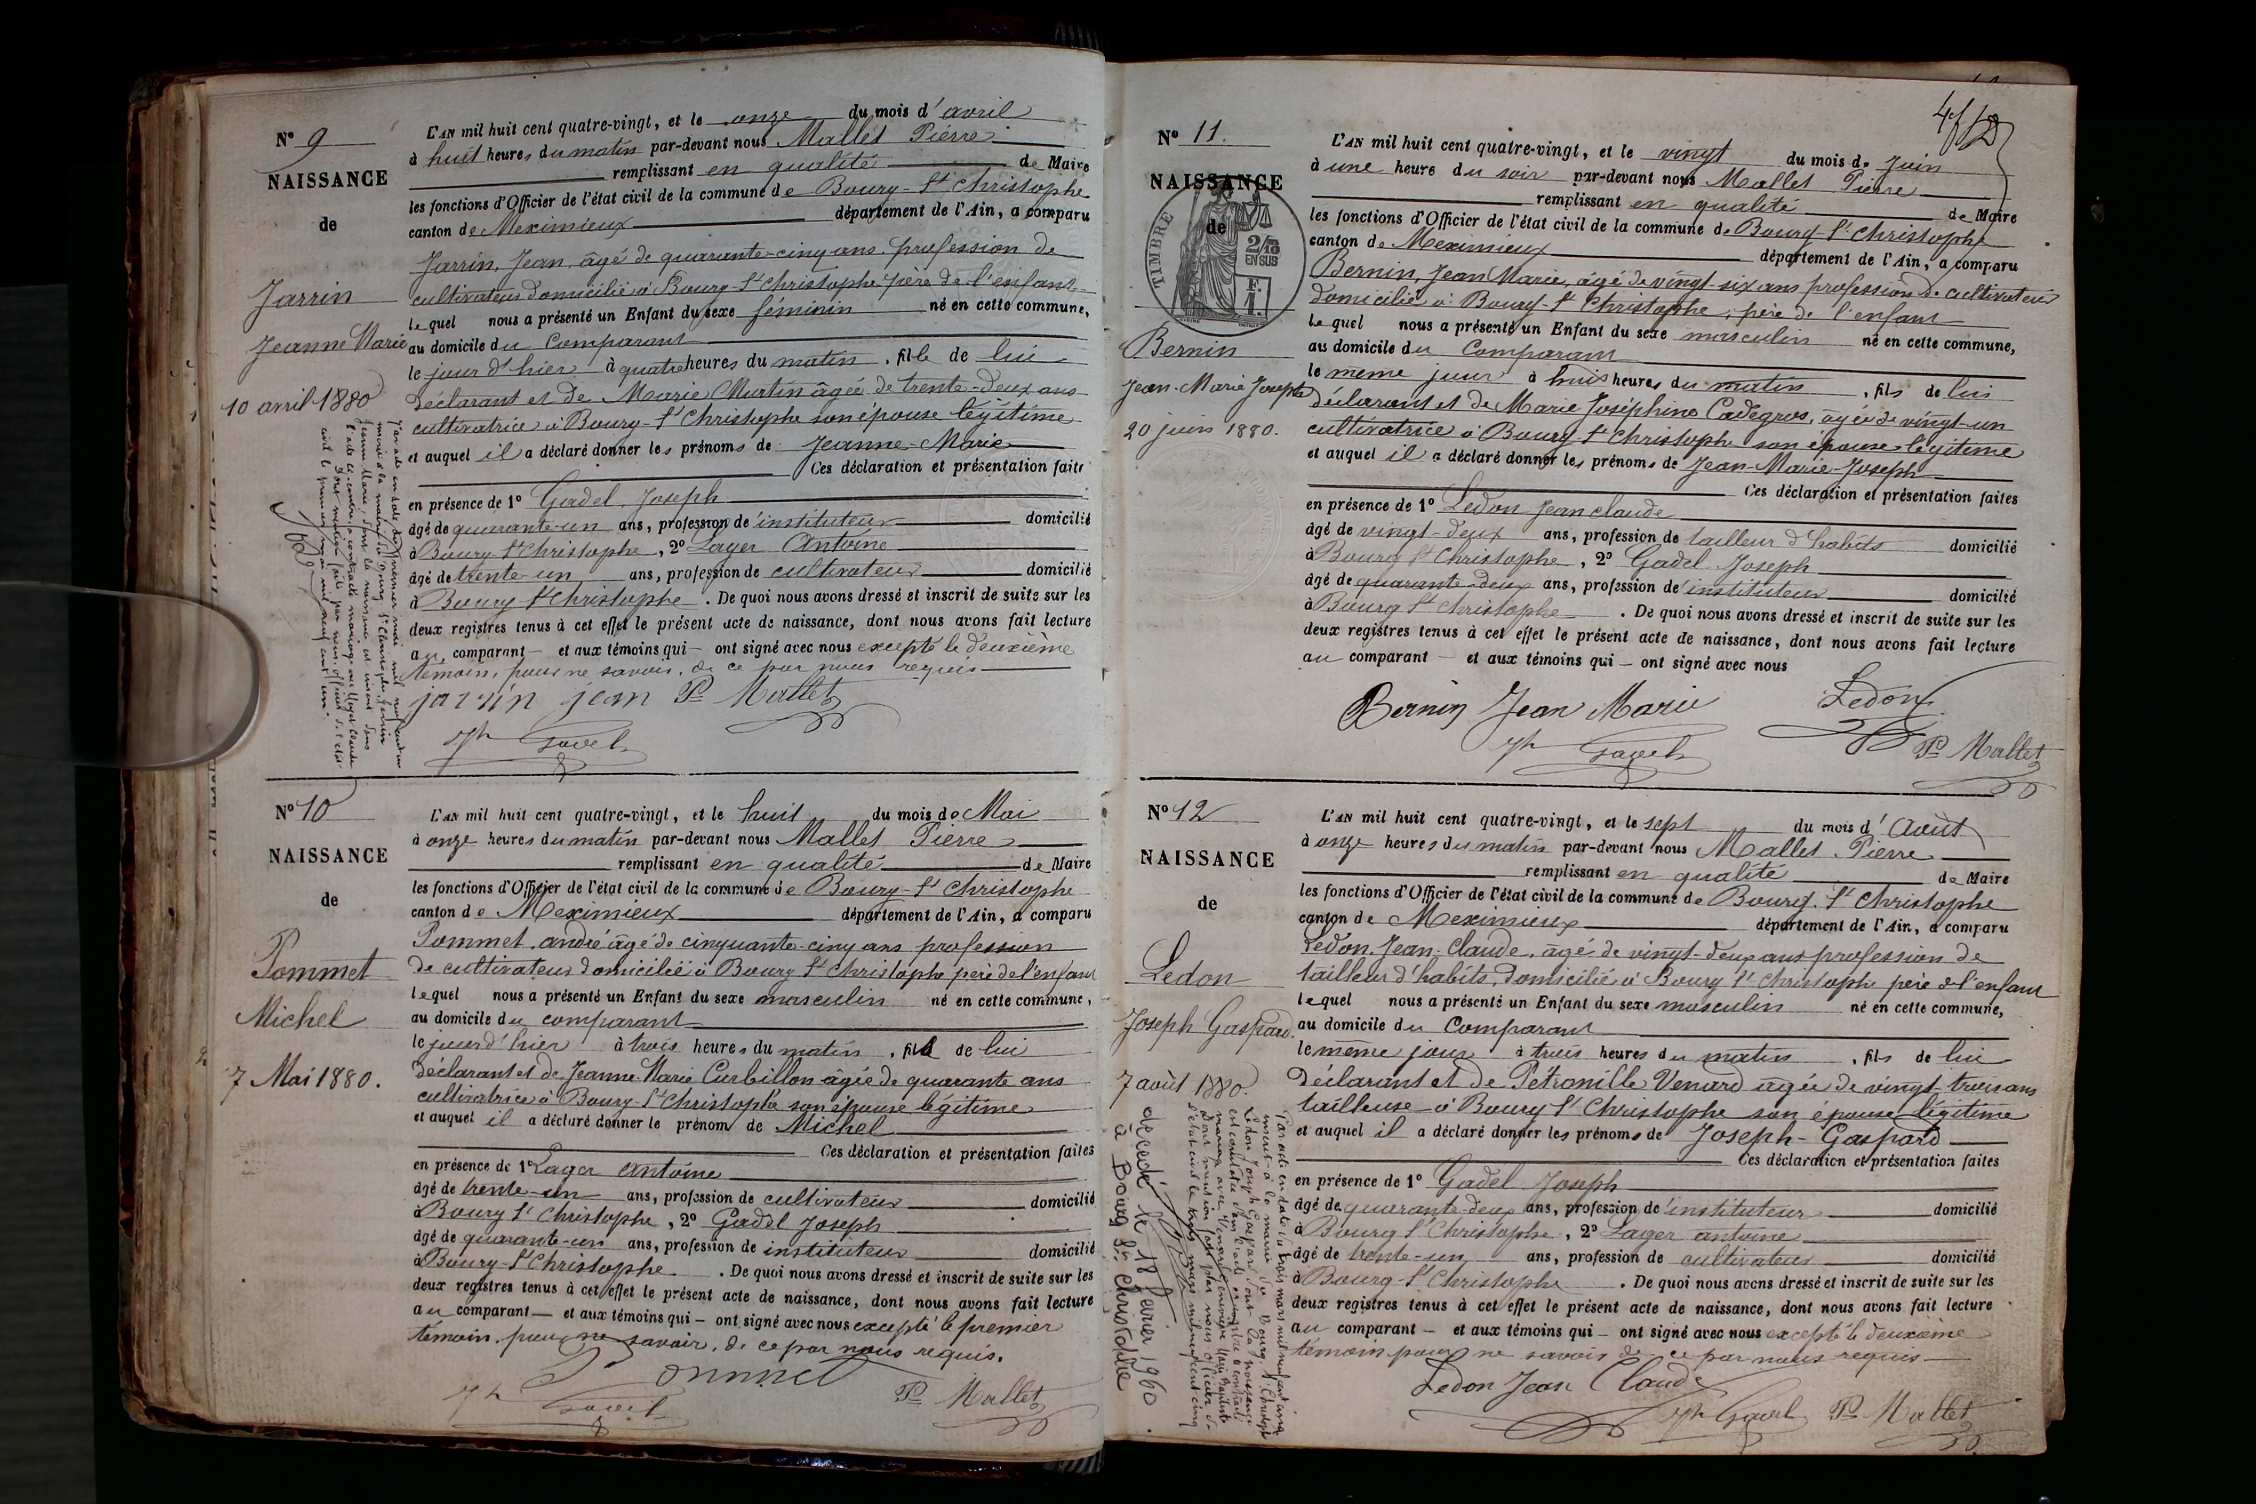 N° 9
NAISSANCE
de
Jarrin
Jeanne Marie
10 avril 1880
L'AN mil huit cent quatre-vingt, et le onze du mois d'avril
à huit heures du matin par-devant nous Mallet Pierre
remplissant en qualité de Maire
les fonctions d'Officier de l'état civil de la commune de Bourg-St Christophe
canton de Meximieux département de l'Ain, a comparu
Jarrin, Jean, âgé de quarante-cinq ans profession de
cultivateur domicilié à Bourg-St Christophe père de l'enfant
lequel nous a présenté un Enfant du sexe féminin né en cette commune,
au domicile du Comparant
le jour d'hier à quatre heures du matin, fille de lui
déclarant et de Marie Martin âgée de trente-deux ans
cultivatrice à Bourg-St Christophe son épouse légitime
et auquel il a déclaré donner les prénoms de Jeanne-Marie
Ces déclaration et présentation faites
en présence de 1° Gadel Joseph
âgé de quarante-un ans, profession de instituteur domicilié
à Bourg-St Christophe, 2° Lager Antoine
âgé de trente-un ans, profession de cultivateur domicilié
à Bourg St Christophe. De quoi nous avons dressé et inscrit de suite sur les
deux registres tenus à cet effet le présent acte de naissance, dont nous avons fait lecture
au comparant et aux témoins qui ont signé avec nous excepté le deuxième
témoin, pour ne savoir, de ce par nous requis
jarrin jean Pre Mallet
Jph Gadel
N° 10
NAISSANCE
de
Pommet
Michel
7 Mai 1880.
L'AN mil huit cent quatre-vingt, et le huit du mois de Mai
à onze heures du matin par-devant nous Mallet Pierre
remplissant en qualité de Maire
les fonctions d'Officier de l'état civil de la commune de Bourg-St Christophe
canton de Meximieux département de l'Ain, a comparu
Pommet, andré âgé de cinquante-cinq ans profession
de cultivateur domicilié à Bourg St Christophe père de l'enfant
lequel nous a présenté un Enfant du sexe masculin né en cette commune,
au domicile du comparant
le jour d'hier à trois heures du matin, fils de lui
déclarant et de Jeanne-Marie Curbillon âgée de quarante ans
cultivatrice à Bourg-St Christophe son épouse légitime
et auquel il a déclaré donner le prénom de Michel
Ces déclaration et présentation faites
en présence de 1° Lager antoine
âgé de trente-un ans, profession de cultivateur domicilié
à Bourg St Christophe, 2° Gadel Joseph
âgé de quarante-un ans, profession de instituteur domicilié
à Bourg-St Christophe. De quoi nous avons dressé et inscrit de suite sur les
deux registres tenus à cet effet le présent acte de naissance, dont nous avons fait lecture
au comparant et aux témoins qui ont signé avec nous excepté le premier
témoin pour ne savoir, de ce par nous requis.
Pommet
Jph Gadel Pre Mallet
N° 11.
NAISSANCE
de
TIMBRE
2/10 EN SUS
F. 1.
Bernin
Jean-Marie Joseph
20 juin 1880.
L'AN mil huit cent quatre-vingt, et le vingt du mois de Juin
à une heure du soir par-devant nous Mallet Pierre
remplissant en qualité de Maire
les fonctions d'Officier de l'état civil de la commune de Bourg-St Christophe
canton de Meximieux département de l'Ain, a comparu
Bernin, Jean Marie, âgé de vingt-six ans profession de cultivateur
domicilié à Bourg St Christophe, père de l'enfant
lequel nous a présenté un Enfant du sexe masculin né en cette commune,
au domicile du Comparant
le même jour à huit heures du matin, fils de lui
déclarant et de Marie Joséphine Cadegros, âgée de vingt-un
cultivatrice à Bourg St Christophe son épouse légitime
et auquel il a déclaré donner les prénoms de Jean-Marie-Joseph
Ces déclaration et présentation faites
en présence de 1° Ledon Jean claude
âgé de vingt-deux ans, profession de tailleur d'habits domicilié
à Bourg St Christophe, 2° Gadel Joseph
âgé de quarante-deux ans, profession de instituteur domicilié
à Bourg St Christophe. De quoi nous avons dressé et inscrit de suite sur les
deux registres tenus à cet effet le présent acte de naissance, dont nous avons fait lecture
au comparant et aux témoins qui ont signé avec nous
Bernin Jean Marie Ledon
Jph Gadel Pre Mallet
N° 12
NAISSANCE
de
Ledon
Joseph Gaspard.
7 août 1880.
décédé le 18 Fevrier 1960
à Bourg St Christophe
L'AN mil huit cent quatre-vingt, et le sept du mois d'Août
à onze heures du matin par-devant nous Mallet Pierre
remplissant en qualité de Maire
les fonctions d'Officier de l'état civil de la commune de Bourg-St Christophe
canton de Meximieux département de l'Ain, a comparu
Ledon, Jean-Claude, âgé de vingt-deux ans profession de
tailleur d'habits, domicilié à Bourg St Christophe père de l'enfant
lequel nous a présenté un Enfant du sexe masculin né en cette commune,
au domicile du Comparant
le même jour à trois heures du matin, fils de lui
déclarant et de Pétronille Venard âgée de vingt-trois ans
tailleuse à Bourg St Christophe son épouse légitime
et auquel il a déclaré donner les prénoms de Joseph-Gaspard
Ces déclaration et présentation faites
en présence de 1° Gadel Joseph
âgé de quarante-deux ans, profession de instituteur domicilié
à Bourg St Christophe, 2° Lager antoine
âgé de trente-un ans, profession de cultivateur domicilié
à Bourg-St Christophe. De quoi nous avons dressé et inscrit de suite sur les
deux registres tenus à cet effet le présent acte de naissance, dont nous avons fait lecture
au comparant et aux témoins qui ont signé avec nous excepté le deuxième
témoin pour ne savoir de ce par nous requis
Ledon Jean Claude
Jph Gadel Pre Mallet